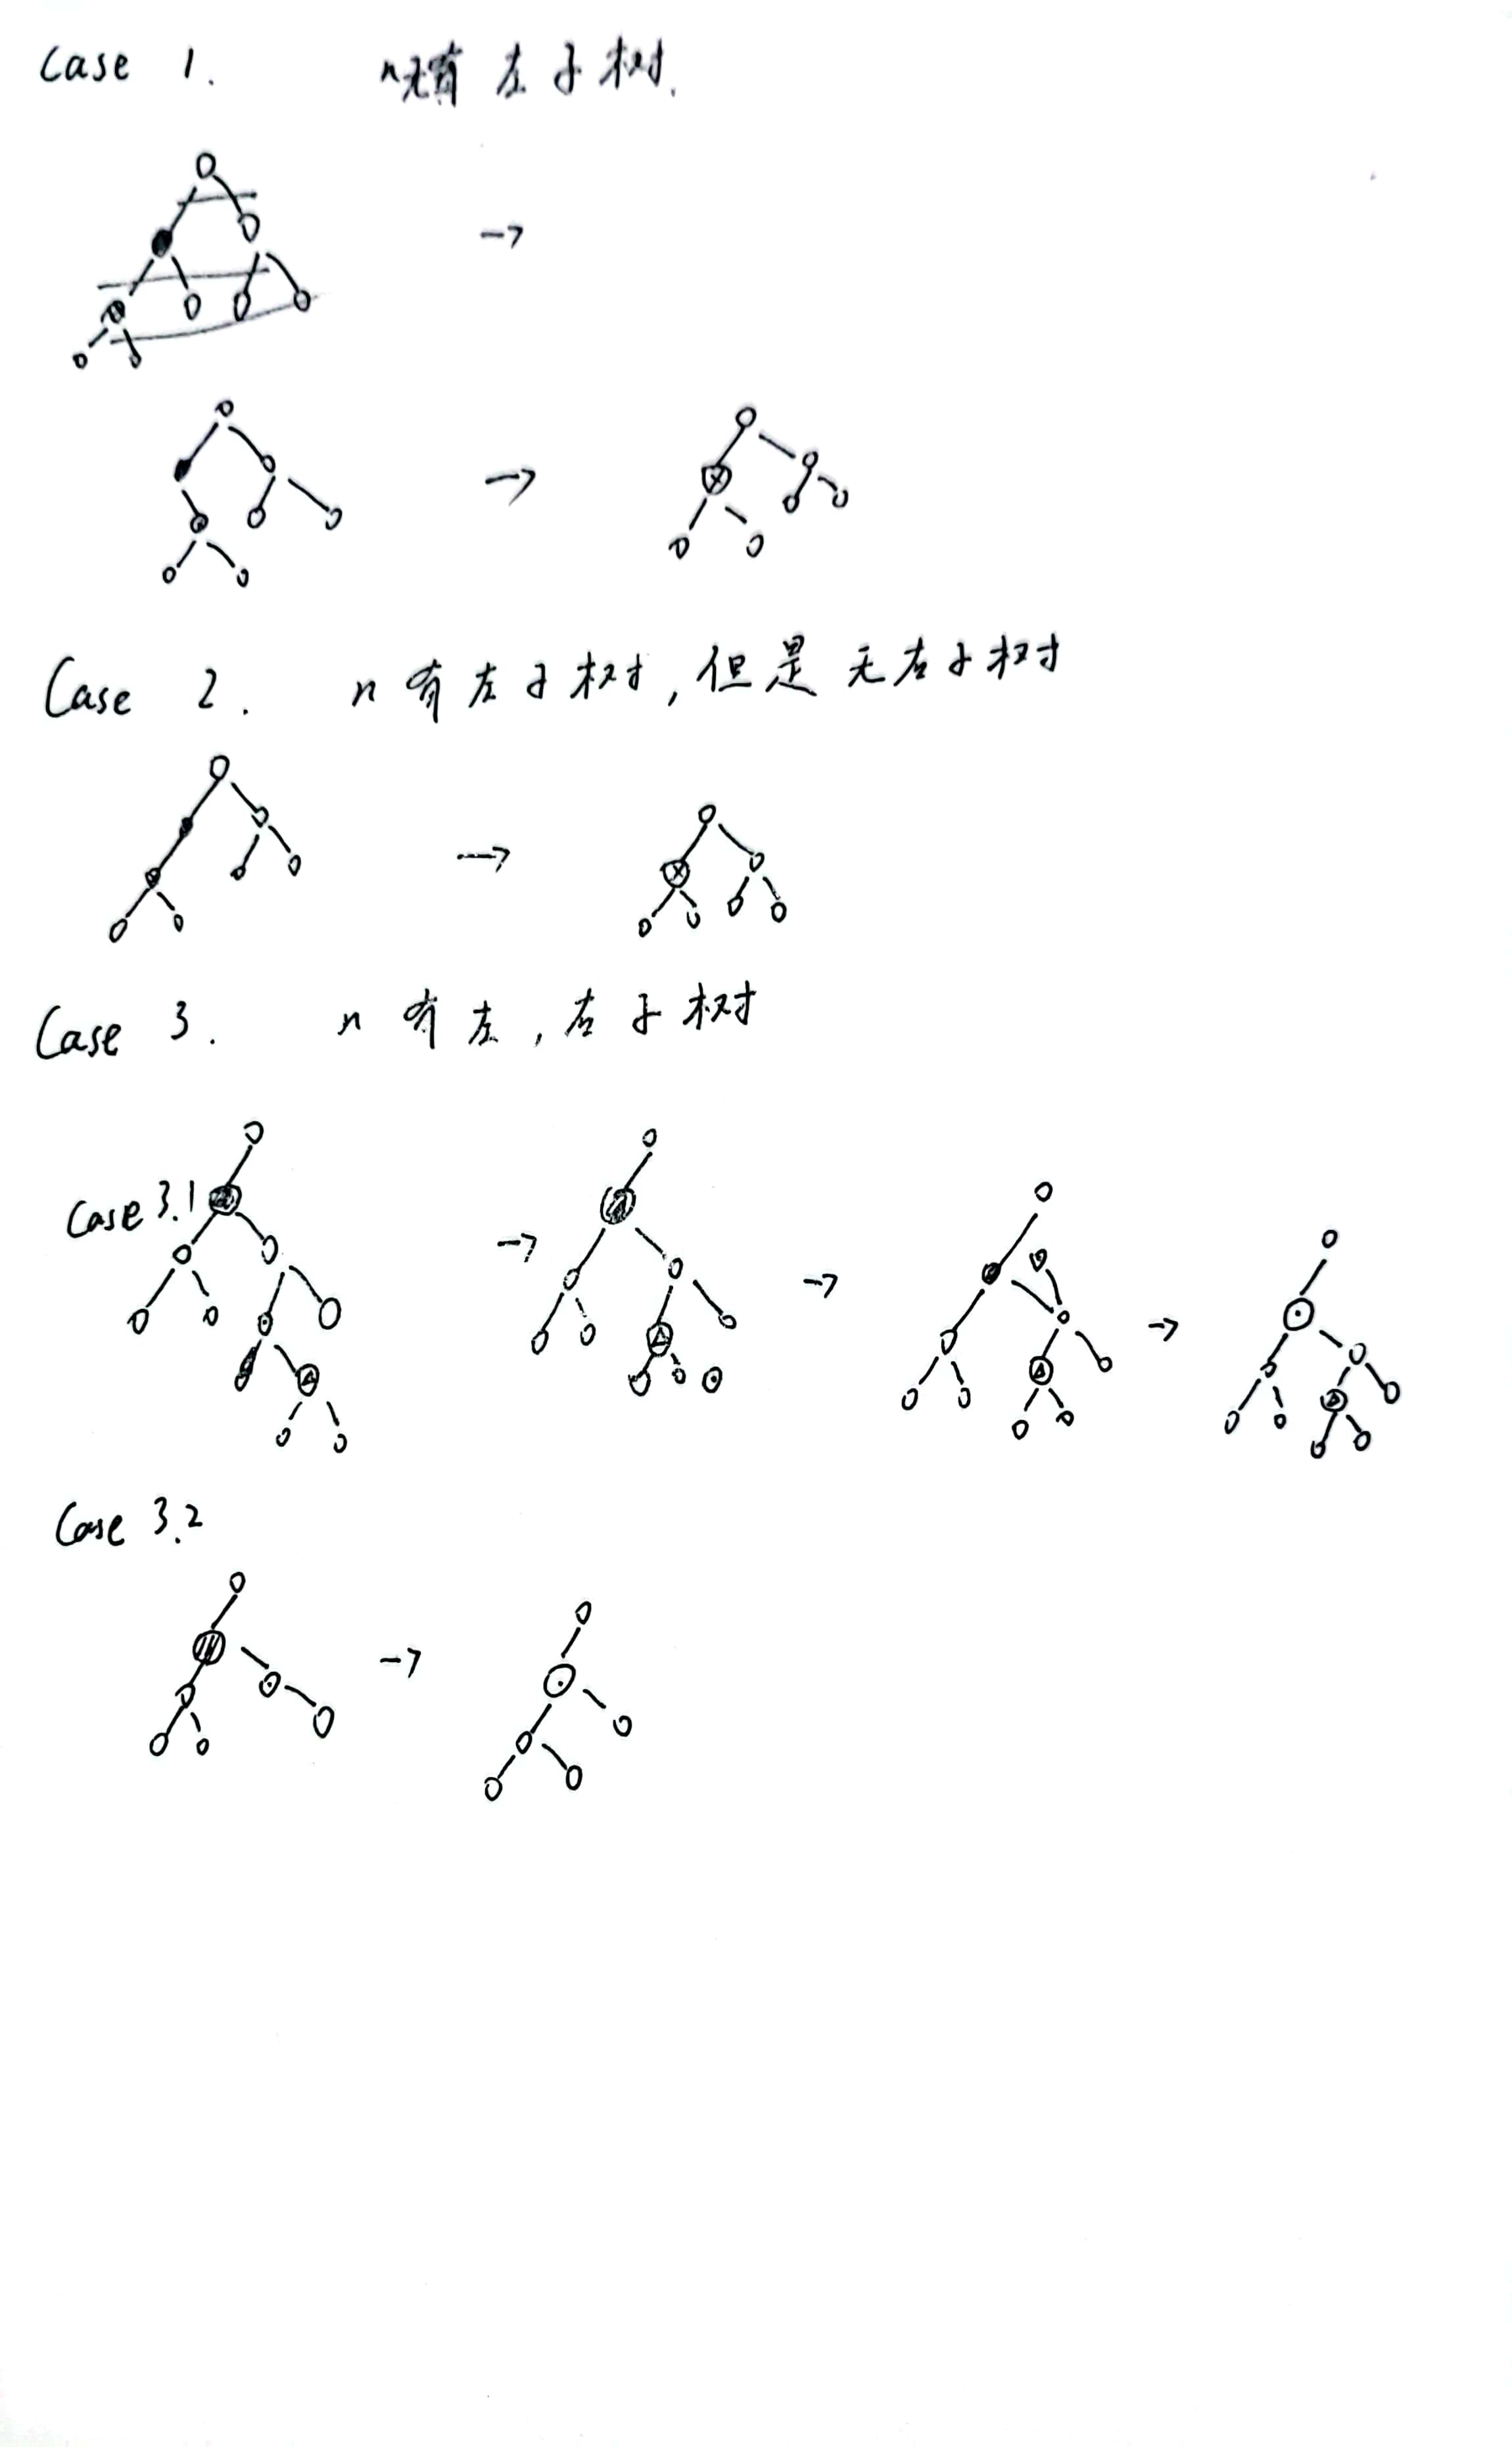 Case 1. n无有左子树.
Case 2. n有左子树,但是无右子树
Case 3. n有左,右子树
Case 3.1
Case 3.2